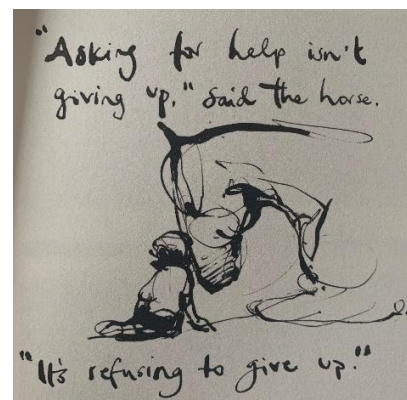 "Asking for help isn't
giving up," said the horse.
"It's refusing to give up."